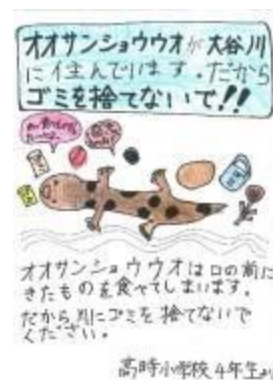 オオサンショウウオが大谷川
に住んでいます。だから
ゴミを捨てないで!!
オオサンショウウオは口の前に
きたものを食べてしまいます。
だから川にゴミを捨てないで
ください。
高時小学校4年生より